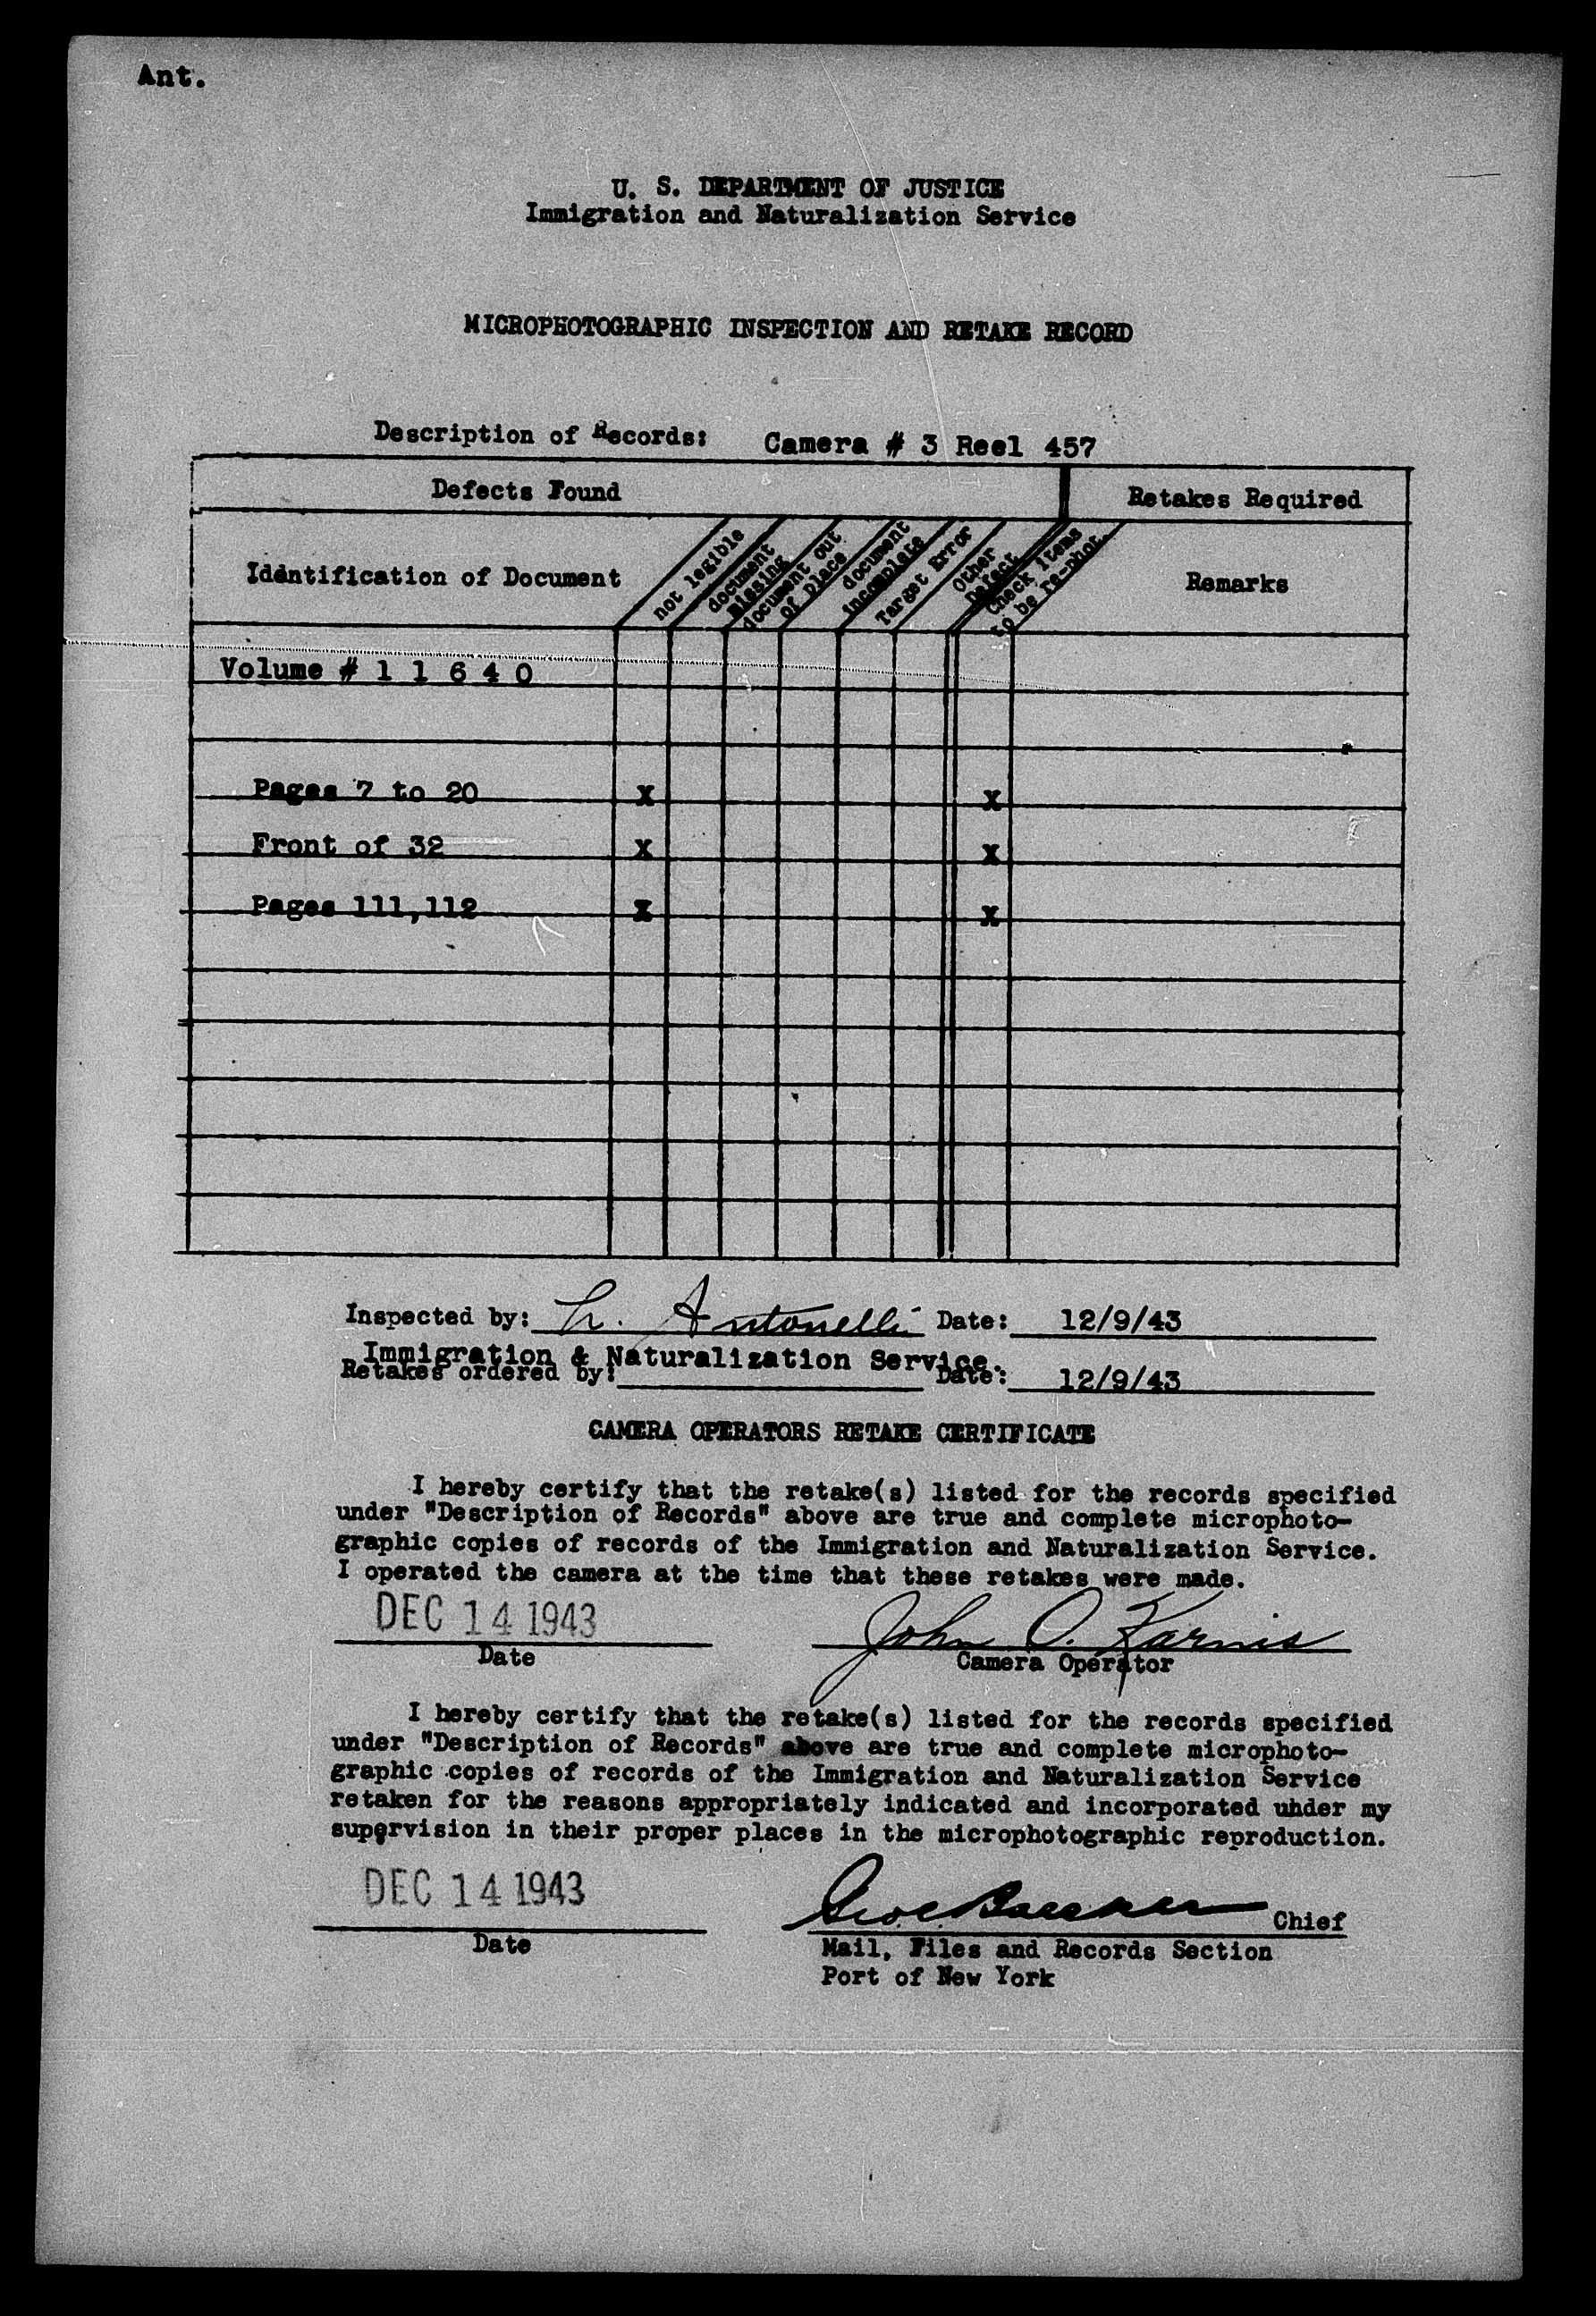 Ant.
U. S. DEPARTMENT OF JUSTICE
Immigration and Naturalization Service
MICROPHOTOGRAPHIC INSPECTION AND RETAKE RECORD
Description of Records: Camera # 3 Reel 457
Defects Found
Retakes Required
Identification of Document
not legible
document missing
document out of place
document incomplete
Target Error
Other Defect
Check items to be re-phot.
Remarks
Volume # 1 1 6 4 0
Pages 7 to 20 X X
Front of 32 X X
Pages 111,112 X X
Inspected by: L. Antonelli Date: 12/9/43
Immigration & Naturalization Service.
Retakes ordered by: Date: 12/9/43
CAMERA OPERATORS RETAKE CERTIFICATE
I hereby certify that the retake(s) listed for the records specified
under "Description of Records" above are true and complete microphoto-
graphic copies of records of the Immigration and Naturalization Service.
I operated the camera at the time that these retakes were made.
DEC 14 1943 John O. Karnis
Date Camera Operator
I hereby certify that the retake(s) listed for the records specified
under "Description of Records" above are true and complete microphoto-
graphic copies of records of the Immigration and Naturalization Service
retaken for the reasons appropriately indicated and incorporated uhder my
supervision in their proper places in the microphotographic reproduction.
DEC 14 1943
Chief
Date
Mail, Files and Records Section
Port of New York